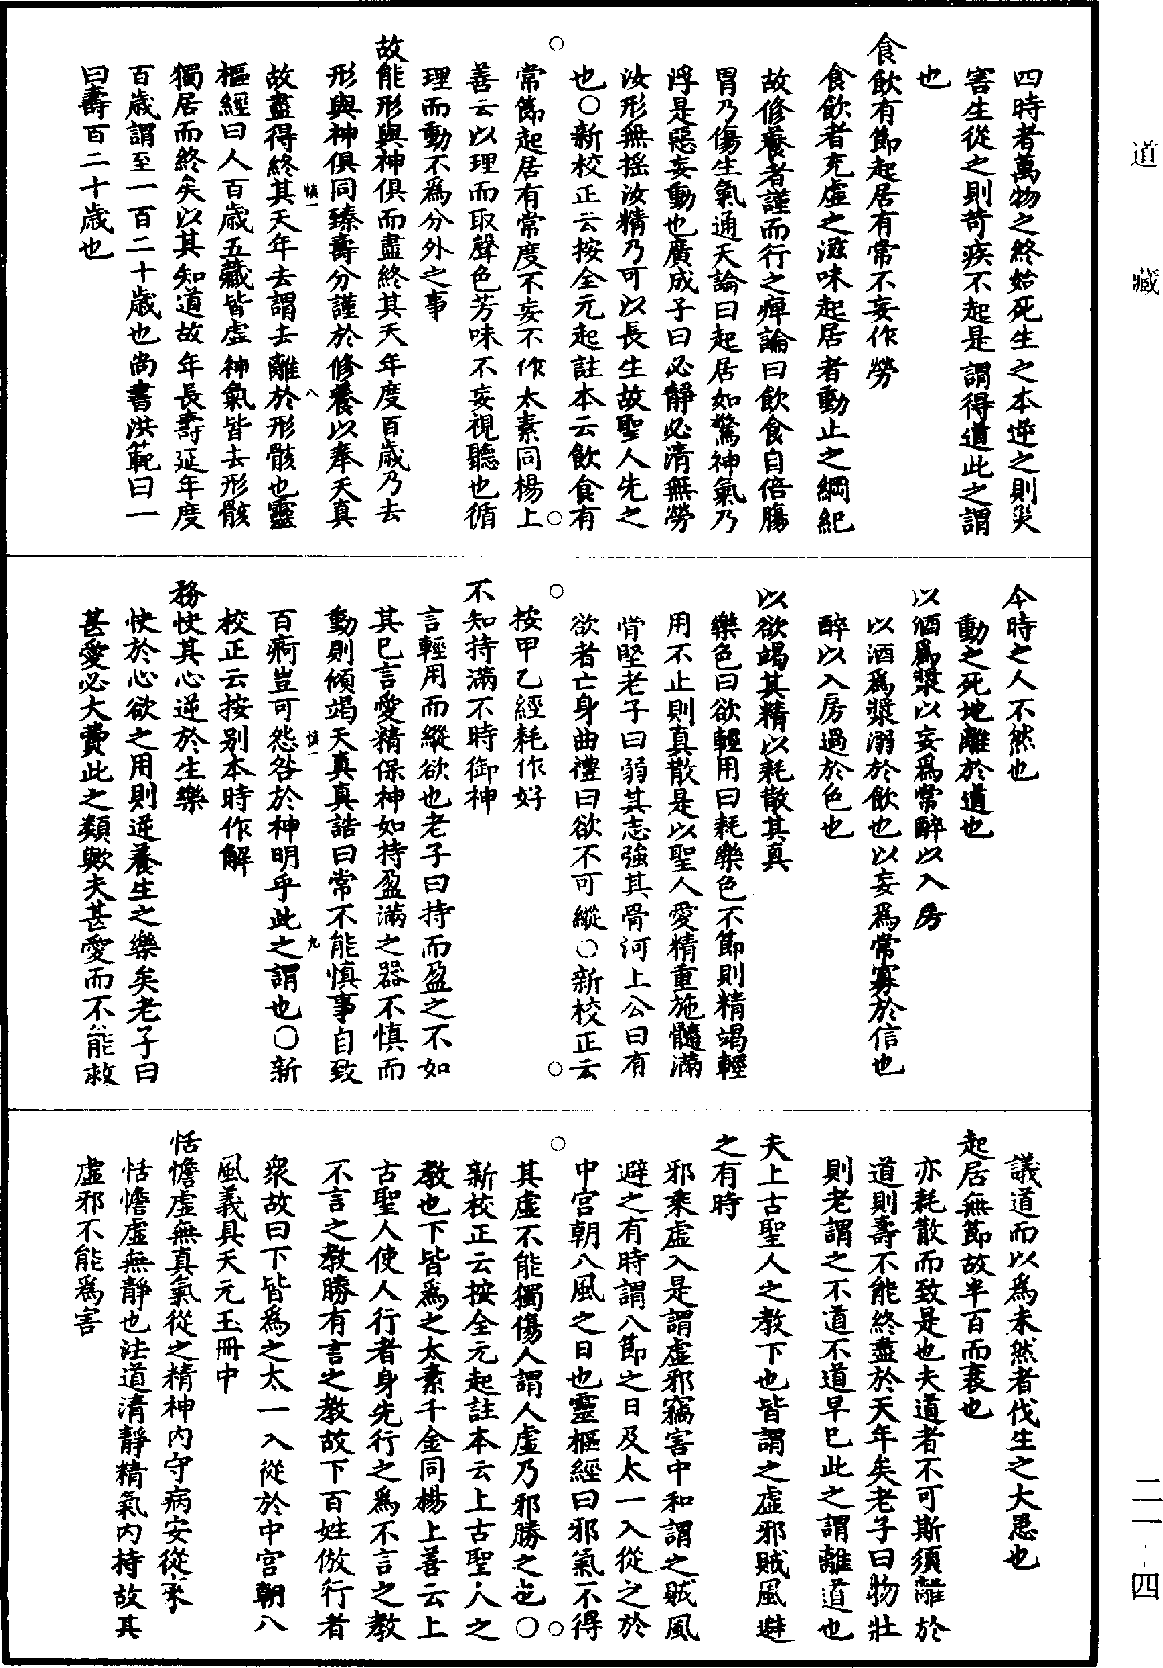 道藏
四時者萬物之終始死生之本逆之則災
害生從之則苛疾不起是謂得道此之謂
也
食飲有節起居有常不妄作勞
食飲者充虛之滋味起居者動止之綱紀
故修養者謹而行之痺論曰飲食自倍腸
胃乃傷生氣通天論曰起居如驚神氣乃
浮是惡妄動也廣成子曰必靜必清無勞
汝形無摇汝精乃可以長生故聖人先之
也○新校正云按全元起註本云飲食有
常節起居有常度不妄不作太素同楊上
善云以理而取聲色芳味不妄視聽也循
理而動不為分外之事
故能形與神俱而盡終其天年度百歲乃去
形與神俱同臻壽分謹於修養以奉天真
慎一 八
故盡得終其天年去謂去離於形骸也靈
樞經曰人百歲五藏皆虛神氣皆去形骸
獨居而終矣以其知道故年長壽延年度
百歲謂至一百二十歲也尚書洪範曰一
曰壽百二十歲也
今時之人不然也
動之死地離於道也
以酒爲漿以妄爲常醉以入房
以酒爲漿溺於飲也以妄爲常寡於信也
醉以入房過於色也
以欲竭其精以耗散其真
樂色曰欲輕用曰耗樂色不節則精竭輕
用不止則真散是以聖人愛精重施髓滿
骨堅老子曰弱其志強其骨河上公曰有
欲者亡身曲禮曰欲不可縱○新校正云
按甲乙經耗作好
不知持滿不時御神
言輕用而縱欲也老子曰持而盈之不如
其已言愛精保神如持盈滿之器不慎而
動則傾竭天真真誥曰常不能慎事自致
慎一 九
百痾豈可怨咎於神明乎此之謂也○新
校正云按别本時作解
務快其心逆於生樂
快於心欲之用則逆養生之樂矣老子曰
甚愛必大費此之類歟夫甚愛而不能救
議道而以爲未然者伐生之大患也
起居無節故半百而衰也
亦耗散而致是也夫道者不可斯須離於
道則壽不能終盡於天年矣老子曰物壯
則老謂之不道不道早已此之謂離道也
夫上古聖人之教下也皆謂之虛邪賊風避
之有時
邪乘虛入是謂虛邪竊害中和謂之賊風
避之有時謂八節之日及太一入從之於
中宮朝八風之日也靈樞經曰邪氣不得
其虛不能獨傷人謂人虛乃邪勝之也○
新校正云按全元起註本云上古聖人之
教也下皆爲之太素千金同楊上善云上
古聖人使人行者身先行之爲不言之教
不言之教勝有言之教故下百姓倣行者
衆故曰下皆爲之太一入從於中宮朝八
風義具天元玉冊中
恬憺虛無真氣從之精神内守病安從來
恬憺虛無靜也法道清靜精氣内持故其
虛邪不能爲害
二一·四